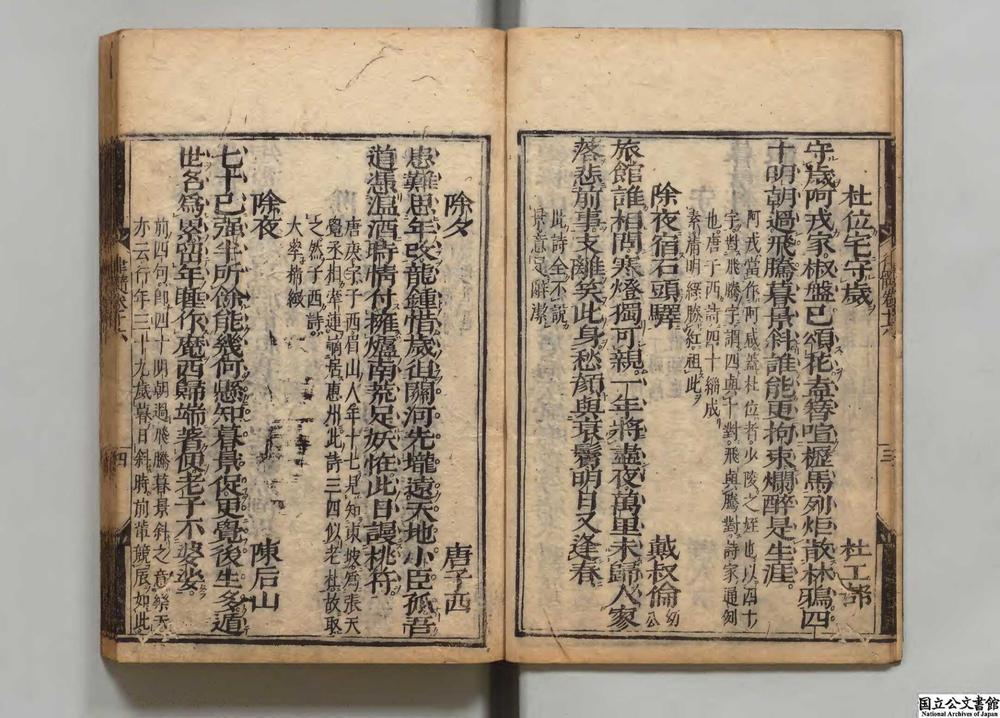 杜位宅守歲 杜工部
守歲阿戎家椒盤已頌花盍簪喧櫪馬列炬散林鴉四
十明朝過飛騰暮景斜誰能更拘束爛醉是生涯
阿戎當作阿咸蓋杜位者少陵之姪也以四十
字對飛騰字謂四與十對飛與騰對詩家通例
也唐子西詩四十緇成
素清明綠勝紅祖此
除夜宿石頭驛 戴叔倫 幼公
旅館誰相問寒燈獨可親一年將盡夜萬里未歸人寥
落悲前事支離笑此身愁顏與衰鬢明日又逢春
此詩全不說
景意足辭潔
三
除夕 唐子西
患難思年改龍鍾惜歲徂關河先壠遠天地小臣孤吾
道憑温酒時情付擁爐南荒足妖怪此日謾桃符
唐庚字子西眉山人年十七見知東坡爲張天
覺丞相牽連謫居惠州此詩三四似老杜故取
之然子西詩
大率精緻
除夜 陳后山
七十已强半所餘能幾何懸知暮景促更覺後生多遁
世名爲累留年睡作魔西歸端著便老子不婆娑
前四句即四十明朝過飛騰暮景斜之意樂天
亦云行年三十九歲暮日斜時前輩競辰如此
四
国立公文書館
National Archives of Japan